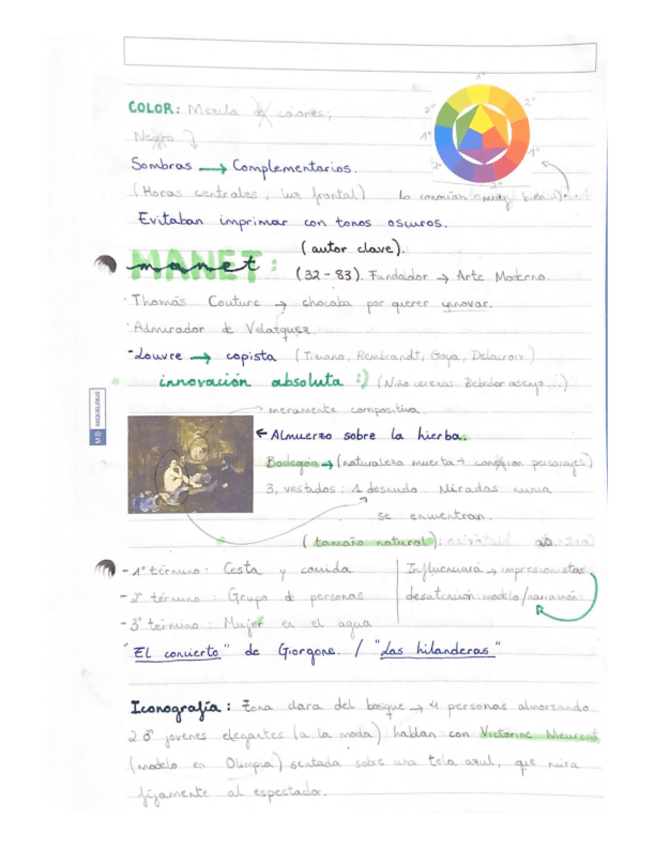 COLOR: Mezcla de colores;
Negro
Sombras → Complementarios.
(Horas centrales, luz frontal) Lo conocían muy bien
Evitaban imprimar con tonos oscuros.
(autor clave).
MANET: (32-83). Fundador → Arte Moderno.
manet
· Thomás Couture → chocaba por querer innovar.
· Admirador de Velázquez.
- Louvre → copista (Tiziano, Rembrandt, Goya, Delacroix)
innovación absoluta :) (Niño cerezas, Bebedor
meramente compositiva.
← Almuerzo sobre la hierba.
Bodegón → (naturaleza muerta → personajes)
3, vestidos: 1 desnudo. Miradas nunca
se encuentran.
(tamaño natural):
- 1º término: Cesta y comida
- 2º término: Grupo de personas
- 3º término: Mujer en el agua
Influenciará → impresionistas
desatención modelo/narración
"El concierto" de Giorgone. / "Las hilanderas"
Iconografía: Zona clara del bosque → 4 personas almorzando.
2 ♂ jóvenes elegantes (a la moda) hablan con Victorine Meurent,
(modelo en Olimpia) sentada sobre una tela azul, que mira
fijamente al espectador.
MIQUELRIUS